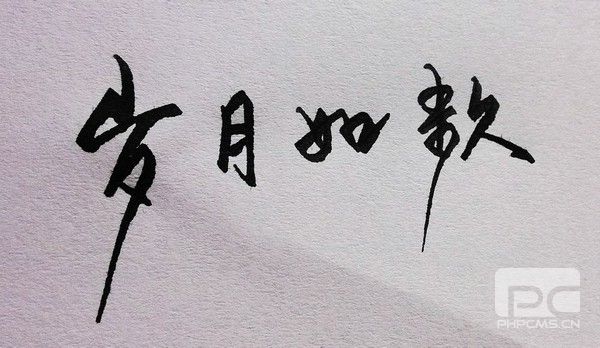 岁月如歌
PHPCMS.CN